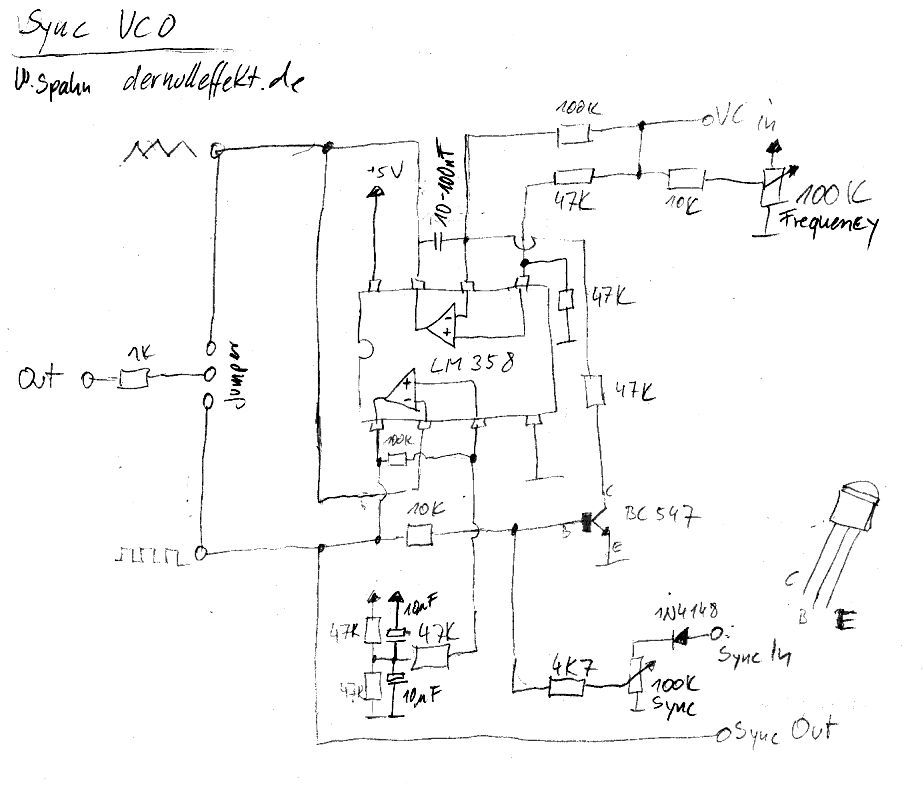 Sync VCO
W. Spahn dernulleffekt.de
100K
VC in
+5V
10-100nF
47K
10K
100K
Frequency
47K
1K
Out
Jumper
LM 358
47K
100K
10K
C
B
E
BC 547
C
B
E
10µF
47K
47K
47K
10µF
1N4148
Sync In
4K7
100K
Sync
Sync Out